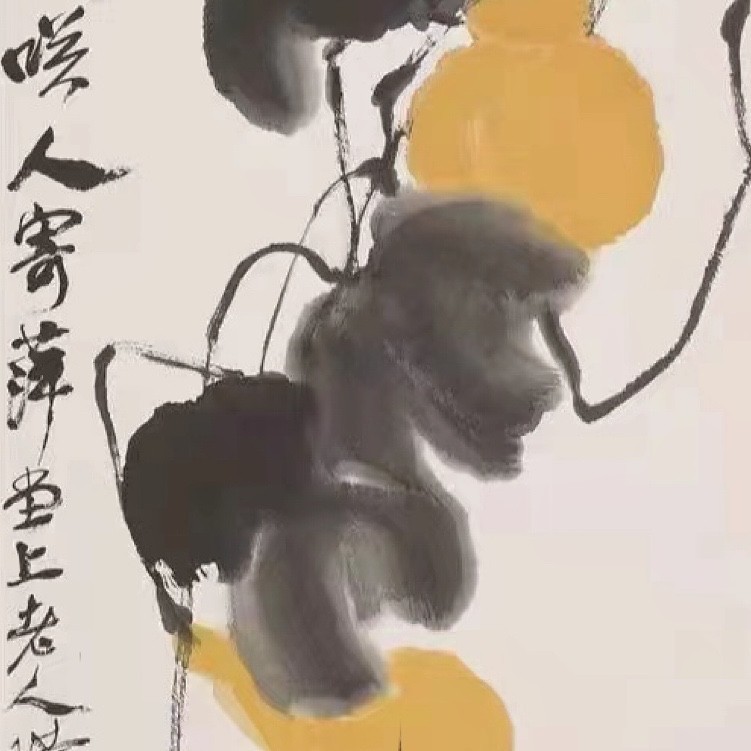 咲人寄萍堂上老人